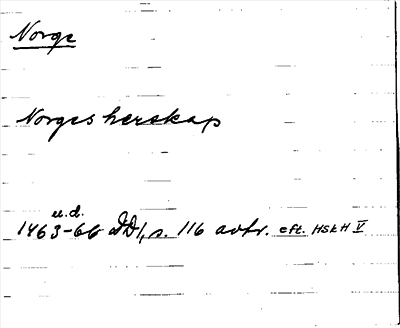 Norge
Norges herskap
u.d.
1463-66 DD1, s. 116 avtr. eft. HSkH V